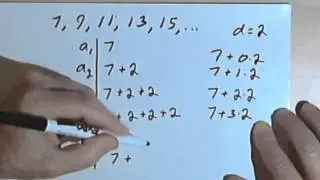 7, 9, 11, 13, 15, ... d = 2
a₁ 7 7 + 0·2
a₂ 7 + 2 7 + 1·2
7 + 2 + 2 7 + 2·2
+ 2 + 2 + 2 7 + 3·2
7 +